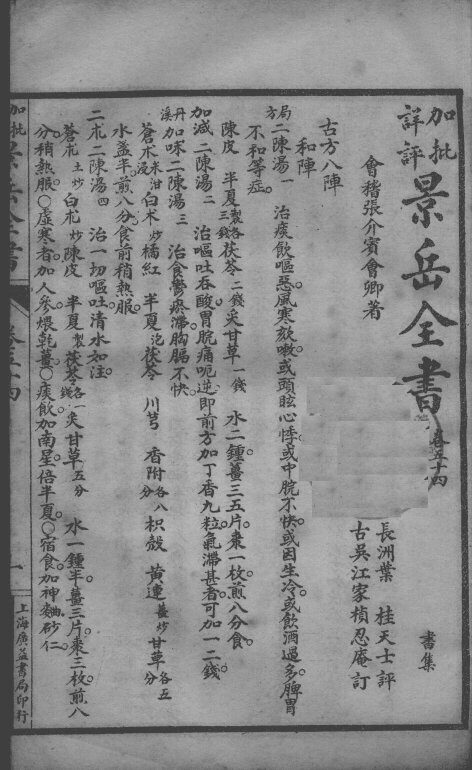 加批
詳評
景岳全書
卷五十四
書集
會稽張介賓會卿著
長洲葉 桂天士評
古吳江家楨忍庵訂
古方八陣
和陣
局方二陳湯一 治痰飲嘔惡風寒欬嗽或頭眩心悸或中脘不快或因生冷或飲酒過多脾胃
不和等症
陳皮 半夏製各三錢 茯苓二錢 炙甘草一錢 水二鍾薑三五片棗一枚煎八分食
加減二陳湯二 治嘔吐吞酸胃脘痛呃逆即前方加丁香九粒氣滯甚者可加一二錢
丹溪加味二陳湯三 治食鬱瘀滯胸膈不快
蒼朮米泔浸 白朮炒 橘紅 半夏泡 茯苓 川芎 香附各八分 枳殼 黃連薑炒 甘草各五分
水盞半煎八分食前稍熱服
二朮二陳湯四 治一切嘔吐清水如注
蒼朮土炒 白朮炒 陳皮 半夏製 茯苓各一錢 炙甘草五分 水一鍾半薑三片棗三枚煎八
分稍熱服○虛寒者加人參煨乾薑○痰飲加南星倍半夏○宿食加神麯砂仁
加批景岳全書
卷五十四
一
上海廣益書局印行